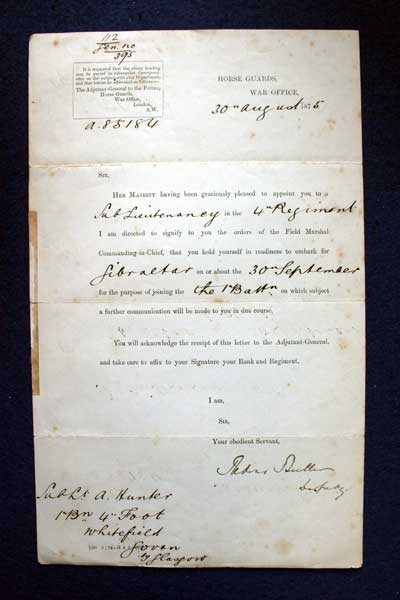 112
Gen. no
395
It is requested that the above heading
may be quoted in subsequent correspond-
ence on the subject with this Department,
and that letters be addressed as follows:—
The Adjutant-General to the Forces,
Horse Guards,
War Office,
London,
S.W.
a.85184
HORSE GUARDS,
WAR OFFICE,
30th August 1875
Sir,
Her Majesty having been graciously pleased to appoint you to a
Sub Lieutenancy in the 4th Regiment
I am directed to signify to you the orders of the Field Marshal
Commanding-in-Chief, that you hold yourself in readiness to embark for
Gibraltar on or about the 30th September
for the purpose of joining the 1st Battn on which subject
a further communication will be made to you in due course.
You will acknowledge the receipt of this letter to the Adjutant-General,
and take care to affix to your Signature your Rank and Regiment.
I am,
Sir,
Your obedient Servant,
Sub Lt A. Hunter
1st Bn 4th Foot
Whitefield
Govan
Glasgow